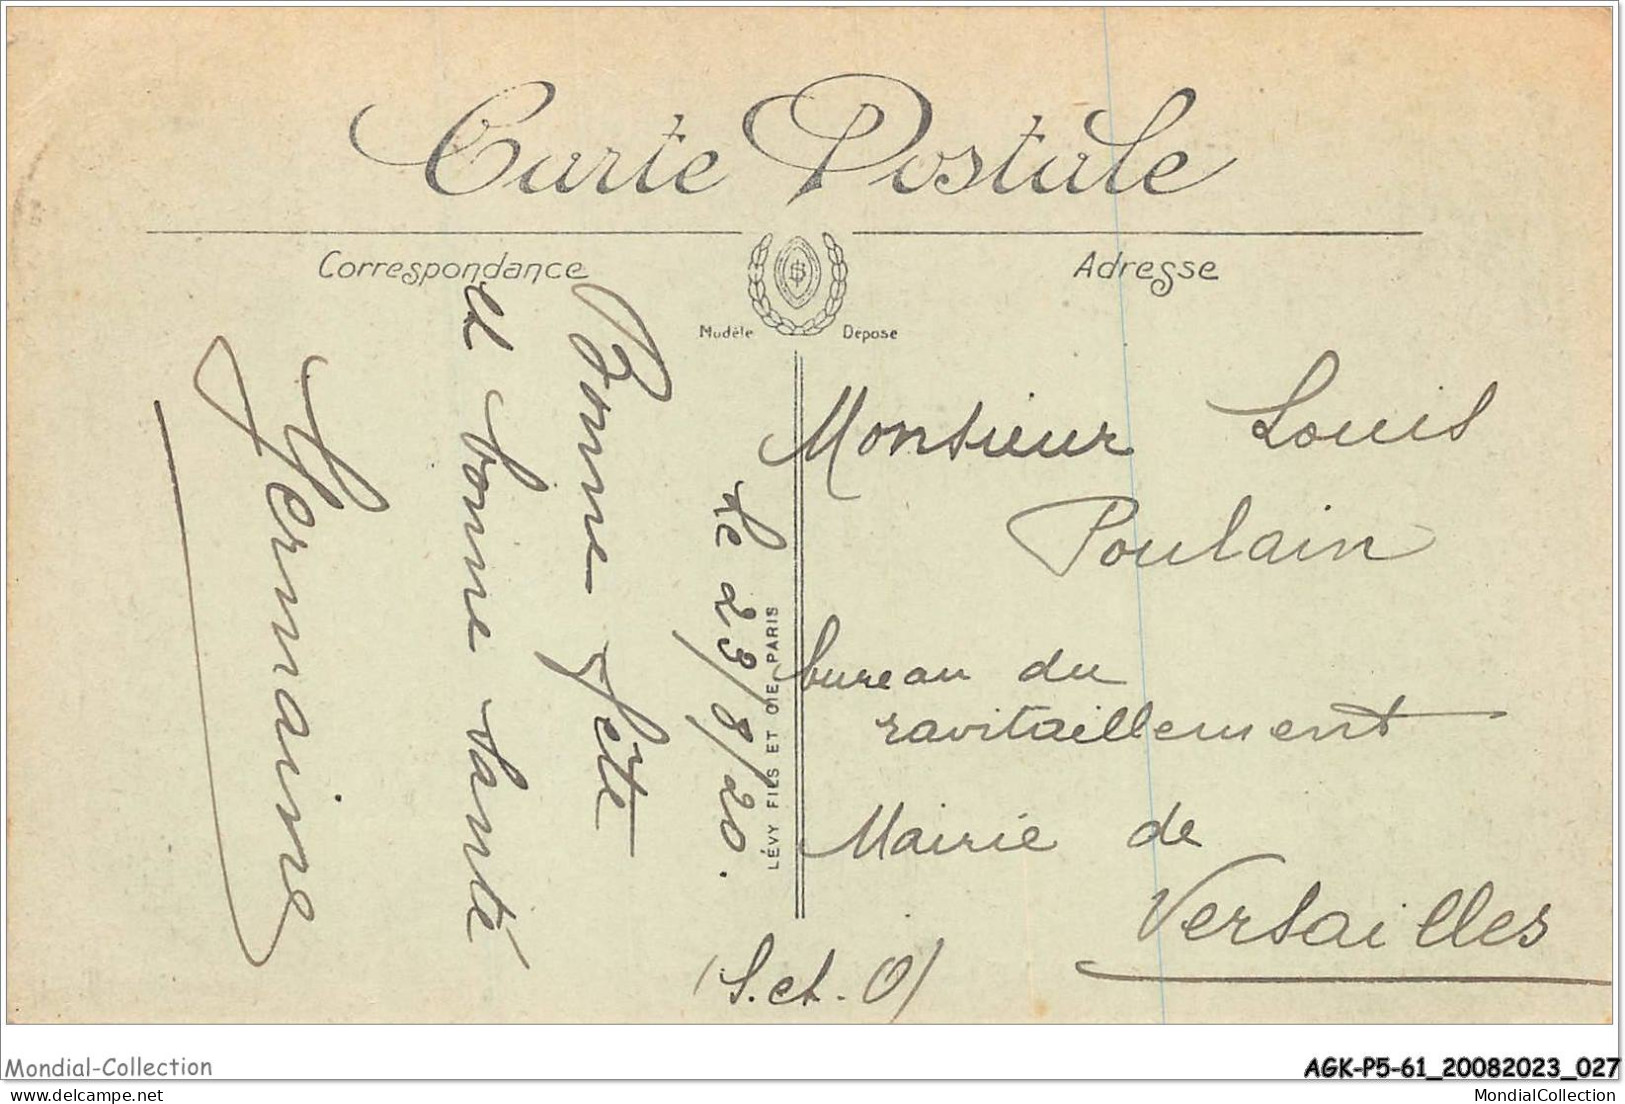 Carte Postale
Correspondance
Adresse
Modèle Déposé
Le 23/8/20.
Bonne fête
et bonne santé
Germaine
LÉVY FILS ET CIE, PARIS
Monsieur Louis
Poulain
bureau du
ravitaillement
Mairie de
Versailles
(S. et. O)
Mondial-Collection
AGK-P5-61_20082023_027
MondialCollection
MondialCollection